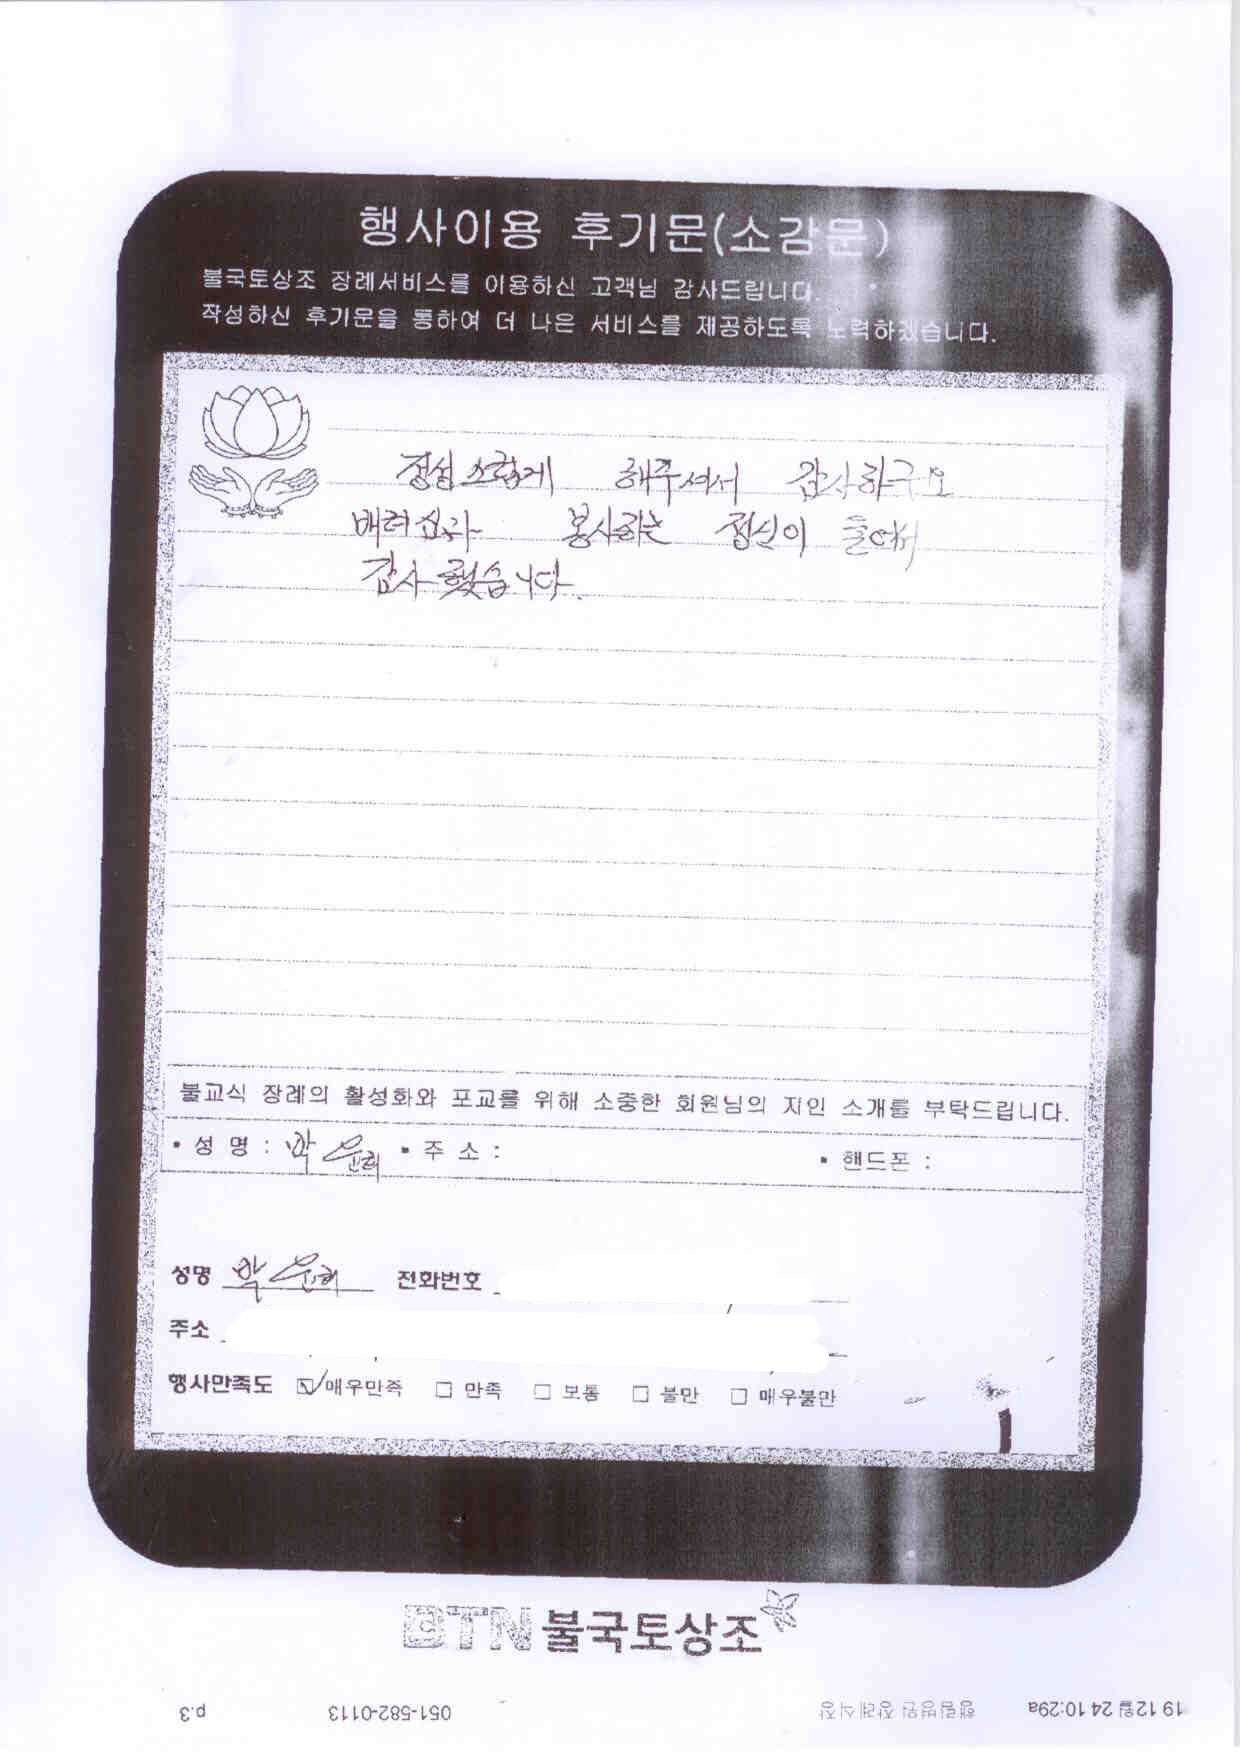 행사이용 후기문(소감문)
불국토상조 장례서비스를 이용하신 고객님 감사드립니다.
작성하신 후기문을 통하여 더 나은 서비스를 제공하도록 노력하겠습니다.
정성스럽게 해주셔서 감사하구요
배려심과 봉사하는 정신이 들어서
감사했습니다.
불교식 장례의 활성화와 포교를 위해 소중한 회원님의 지인 소개를 부탁드립니다.
▪ 성 명 : 박윤희 ▪ 주 소 : ▪ 핸드폰 :
성명 박윤희 전화번호
주소
행사만족도 ☑매우만족 □ 만족 □ 보통 □ 불만 □ 매우불만
BTN불국토상조
19 12월 24 10:29a 행림병원 장례식장 051-582-0113 p.3